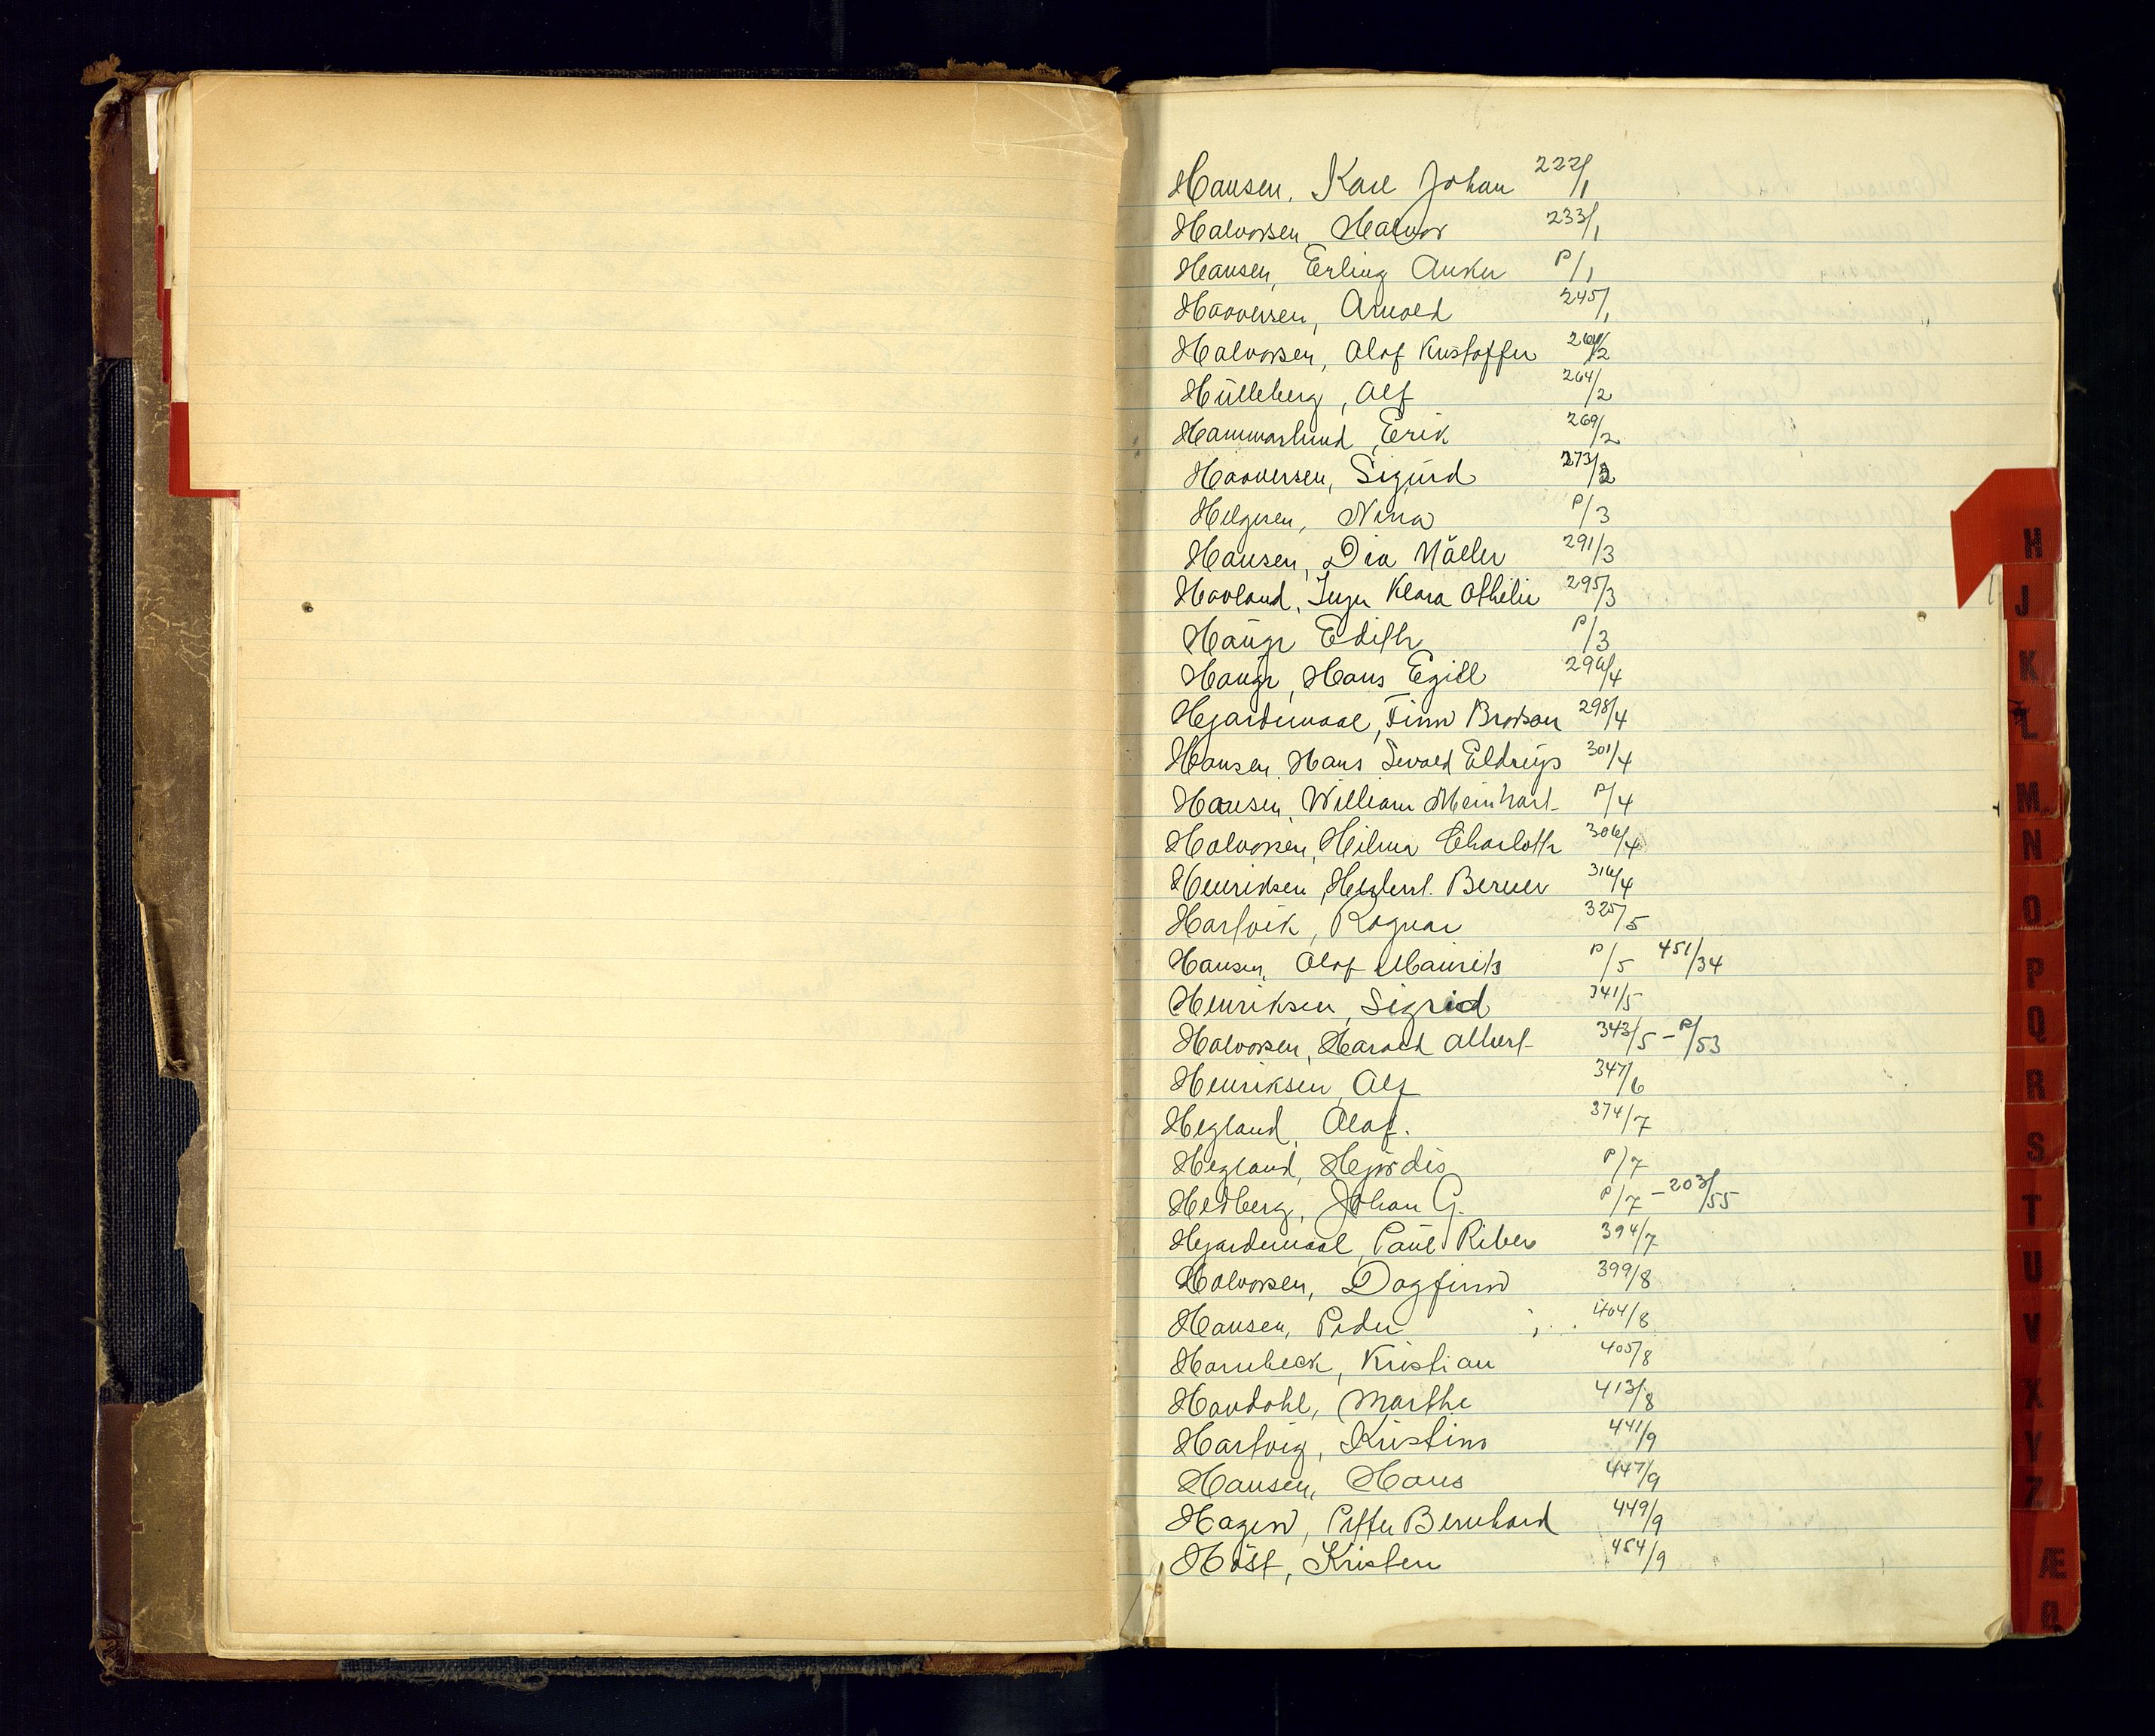 Hansen, Karl Johan 222/1
Halvorsen, Halvor 233/1
Hansen, Erling Anker P/1
Haaversen, Arnold 245/1
Halvorsen, Olaf Kristoffer 260/2
Hülleberg, Alf 264/2
Hammarlund, Erik 269/2
Haaversen, Sigurd 273/2
Helgesen, Nina P/3
Hansen, Dia Möller 291/3
Havland, Inger Klara Othelie 295/3
Hauge Edith P/3
Hauge, Hans Egill 296/4
Hjardemaal, Finn Brodson 298/4
Hansen, Hans Sevald Eldrup 301/4
Hansen, William Meinhart P/4
Halvorsen, Helma Charlotte 306/4
Henriksen, Herbert Berner 316/4
Hartvik, Ragnar 325/5
Hansen, Olaf Maurits P/5 451/34
Henriksen, Sigrid 341/5
Halvorsen, Harald Albert 343/5 - P/53
Henriksen, Alf 347/6
Hegland, Olaf. 374/7
Hegland, Hjördis P/7
Hedberg, Johan G. P/7 - 203/55
Hjardemaal, Paul Riber 394/7
Halvorsen, Dagfinn 399/8
Hansen, Peder 404/8
Harnbeck, Kristian 405/8
Havdahl, Marthe 413/8
Hartvig, Kristine 441/9
Hansen, Hans 447/9
Hagen, Petter Bernhard 449/9
Höst, Kristen 454/9
H
J
K
L
M
N
O
P
Q
R
S
T
U
V
X
Y
Z
Æ
Ø